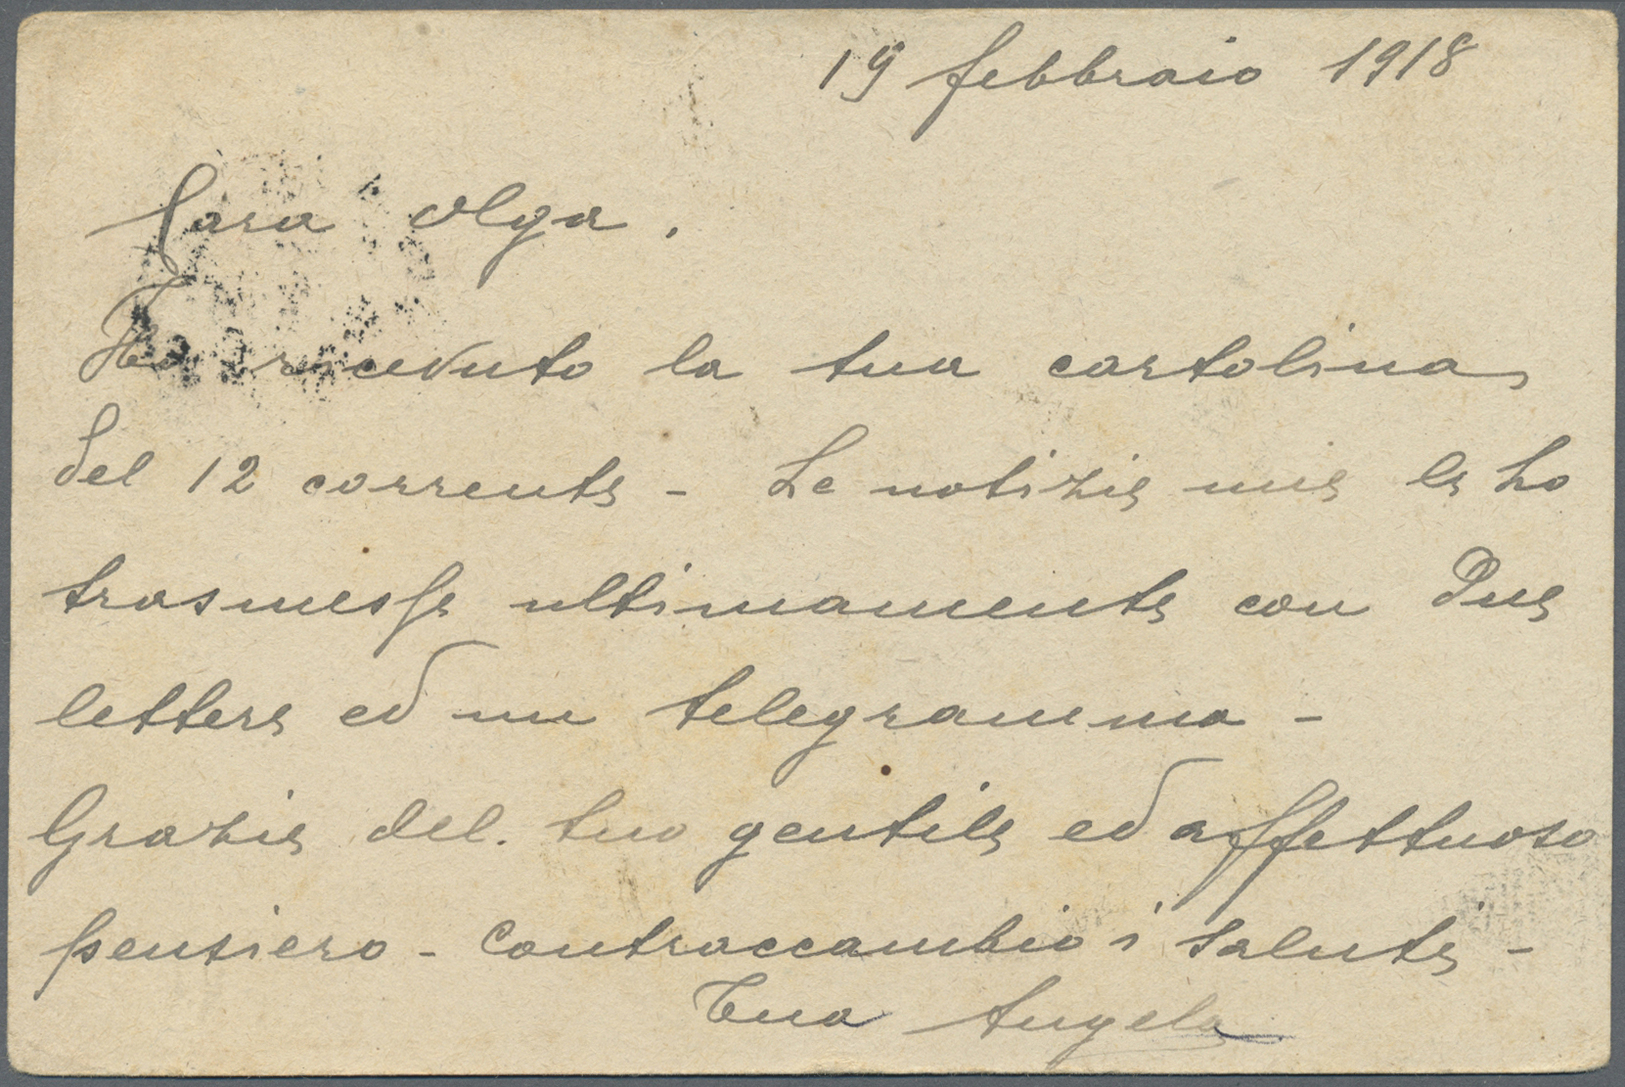 19 febbraio 1918
Cara Olga.
Ho ricevuto la tua cartolina
del 12 corrente - Le notizie mie le ho
trasmesse ultimamente con due
lettere ed un telegramma -
Grazie del. tuo gentile ed affettuoso
pensiero - Contraccambio i saluti -
Tua Angela